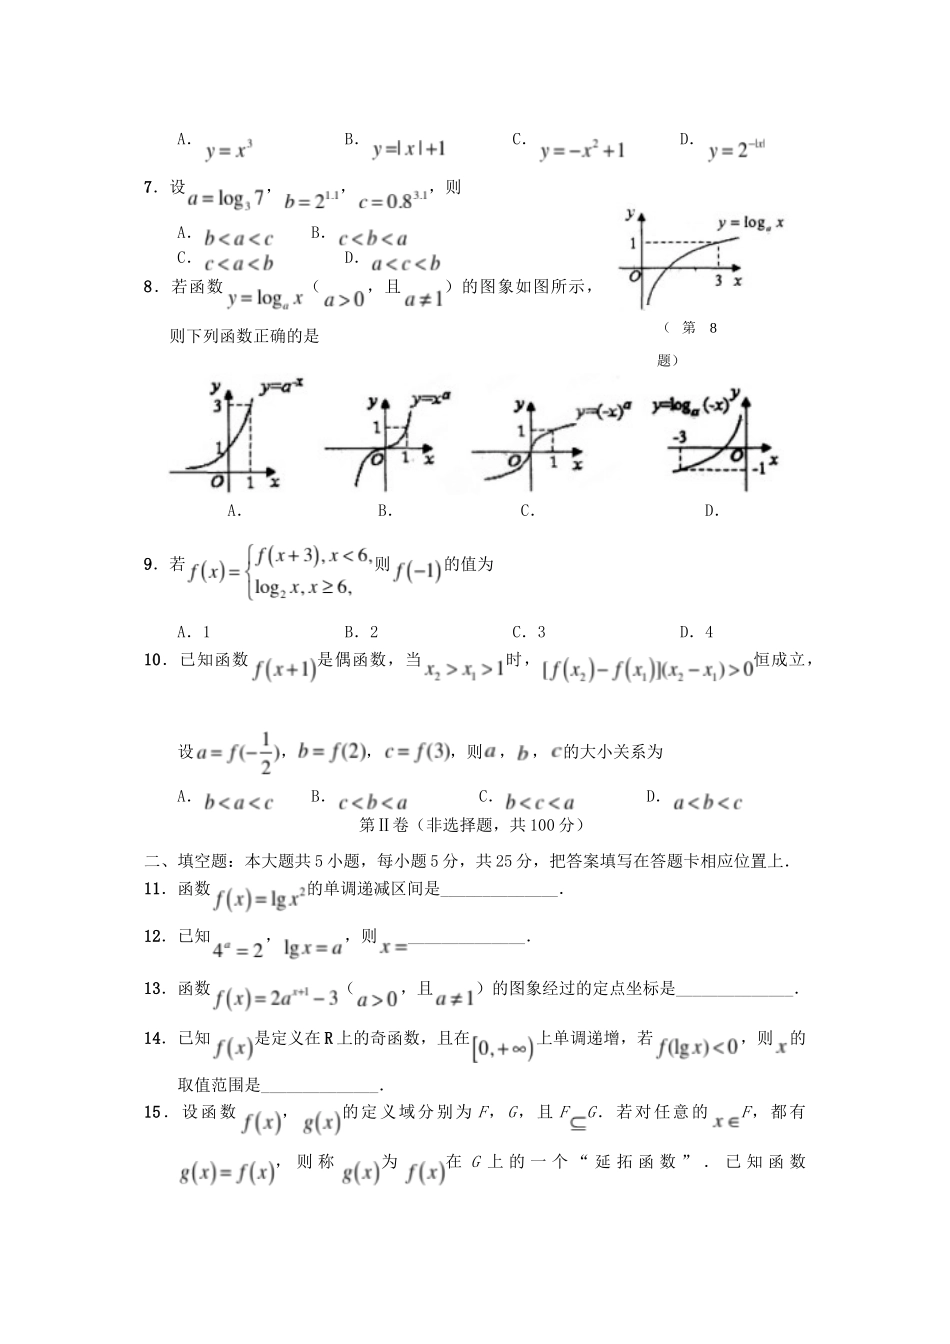 A． y = x³ B． y =| x | +1 C． y = −x² + 1 D． y = 2^{−|x|}
7．设 a = log₃ 7， b = 2^{1.1}， c = 0.8^{3.1}，则
A． b < a < c B． c < b < a
C． c < a < b D． a < c < b
8．若函数 y = logₐ x（ a > 0，且 a ≠ 1）的图象如图所示，
则下列函数正确的是
y y = logₐ x
1
O 3 x
（ 第 8
题）
y y=a^{-x} 3 1 O 1 x
y y=x^a 1 O 1 x
y y=(-x)^a 1 O 1 x
y=logₐ(-x) y -3 O x -1
A． B． C． D．
9．若 f(x) = { f(x+3), x < 6, log₂ x, x ≥ 6, 则 f(−1) 的值为
A．1 B．2 C．3 D．4
10．已知函数 f(x+1) 是偶函数，当 x₂ > x₁ > 1 时，[f(x₂) − f(x₁)](x₂ − x₁) > 0 恒成立，
设 a = f(−1/2)，b = f(2)，c = f(3)，则 a，b，c 的大小关系为
A． b < a < c B． c < b < a C． b < c < a D． a < b < c
第Ⅱ卷（非选择题，共 100 分）
二、填空题：本大题共 5 小题，每小题 5 分，共 25 分，把答案填写在答题卡相应位置上．
11．函数 f(x) = lg x² 的单调递减区间是______________．
12．已知 4^a = 2， lg x = a，则 x =______________．
13．函数 f(x) = 2a^{x+1} − 3（ a > 0，且 a ≠ 1）的图象经过的定点坐标是______________．
14．已知 f(x) 是定义在 R 上的奇函数，且在 [0, +∞) 上单调递增，若 f(lg x) < 0，则 x 的
取值范围是______________．
15．设函数 f(x)， g(x) 的定义域分别为 F，G，且 F ⊆ G．若对任意的 x ∈ F，都有
g(x) = f(x)，则称 g(x) 为 f(x) 在 G 上的一个“延拓函数”．已知函数